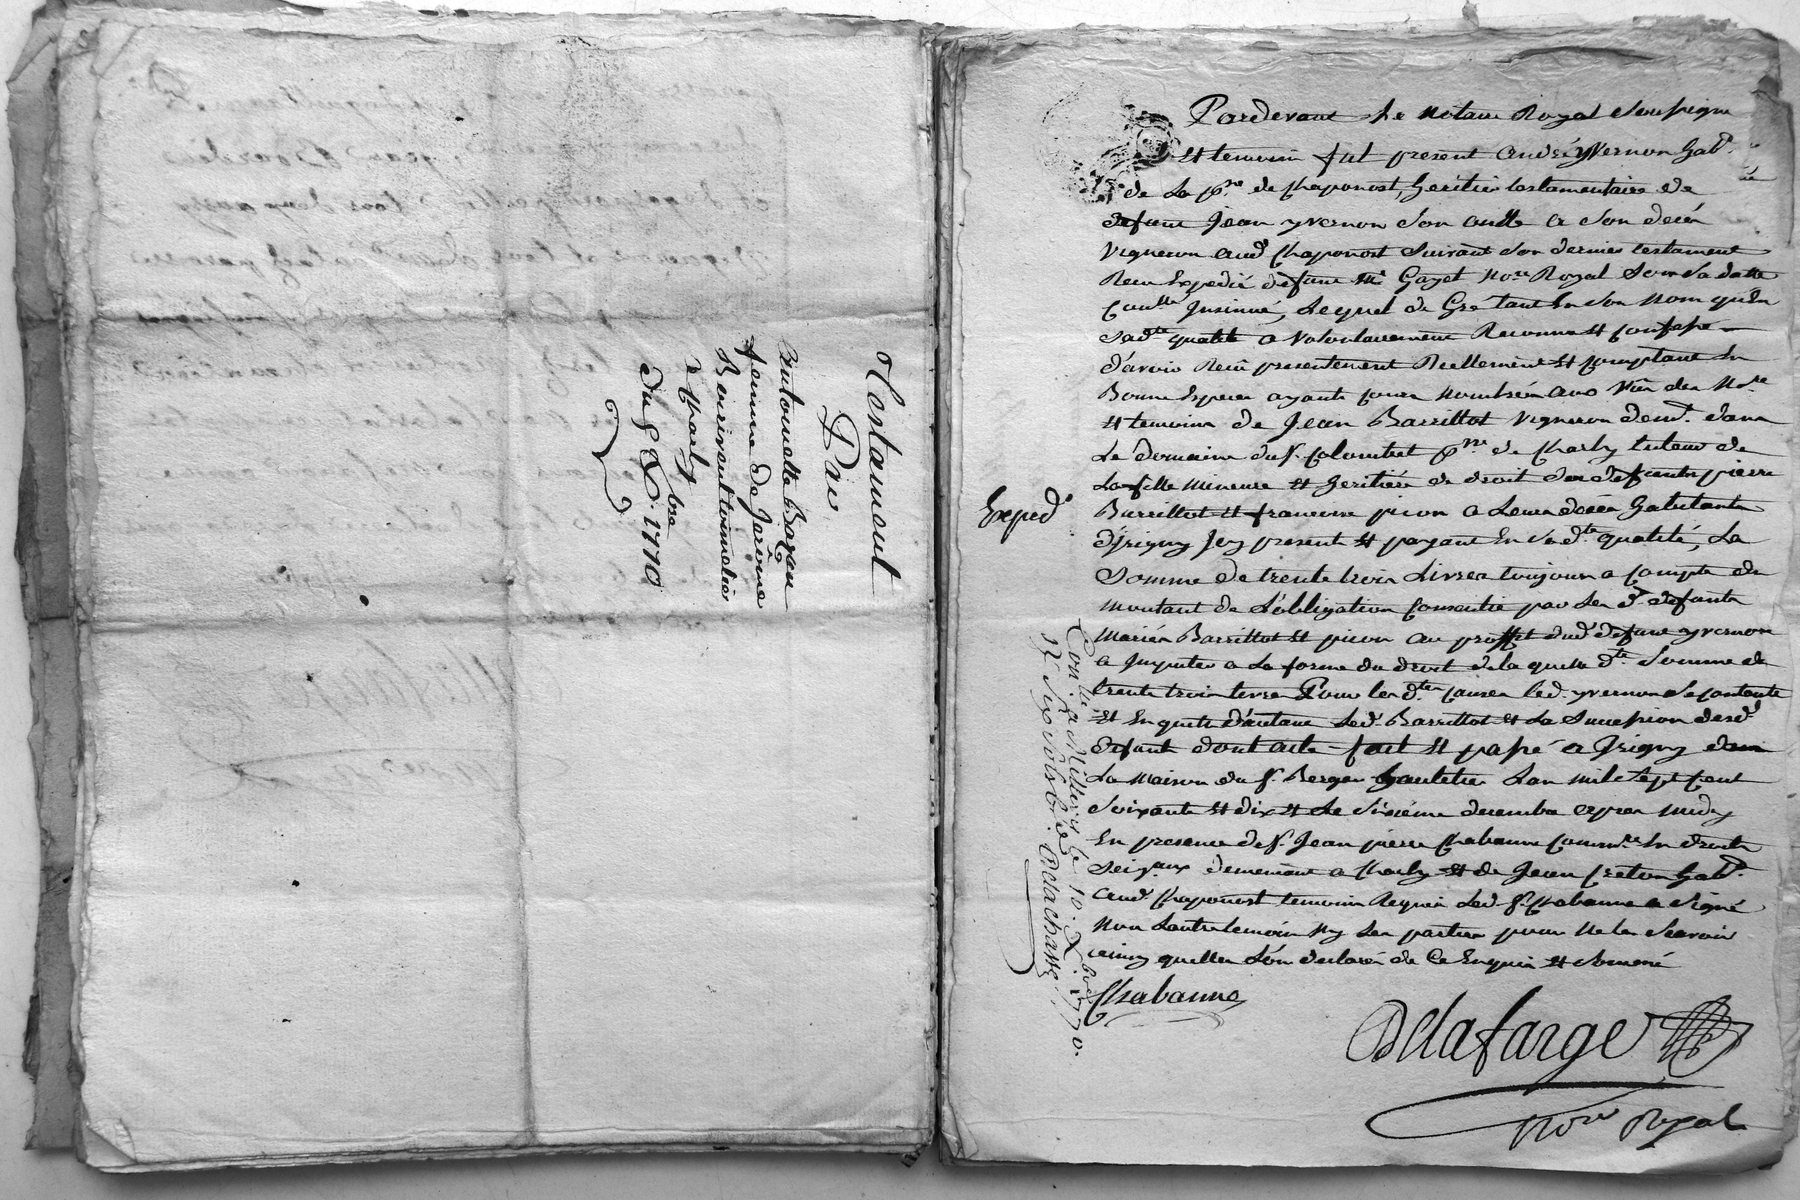 Testament
Par
Antoinette Bazan
femme de Jerôme
Bourirout tonnelier
à Charly
du 8 Xbre 1770
Pardevant le Notaire Royal soussigne
et temoins fut present André yvernon habt.
de la psse de Chaponost, heritier testamentaire de
defunt Jean yvernon son oncle a son decés
vigneron aud. Chaponost suivant son dernier testament
Receu Expedié defunt Me Gayet Nore Royal sous sa datte
Conllé Insinué, Lequel de Gré tant En son nom qu'En
sadte qualité a volontairement Reconnu et confessé
d'avoir Receu presentement Reellement et comptant En
Bonnes Especes ayants cours nombrées aux vües du Nore
et temoins de Jean Barrillot vigneron demt. dans
Le domaine du sr. Colombet psse de Charly tuteur de
La fille mineure et heritiere de droit des defunts pierre
Barrillot et francoise picon a Leurs decés habitants
d'jrigny Icy present et payant En sadte qualité, La
somme de trente trois Livres toujours a compte du
montant de L'obligation Consentie par Les d. defunts
Mariés Barrillot et picon au proffit dud. defunt yvernon
a Imputer a la forme du droit de laquelle dte somme de
trente trois livres Pour les dtes causes led. yvernon se contente
et En quitte d'autant Led. Barrillot et La succession desd.
defunts dont acte fait et passé a Jrigny dans
La maison du sr. Berger hautelier L'an mil sept cent
soixante et dix et Le sixiéme decembre apres midy
En presence de sr. Jean pierre Chabanne commre En droits
seigaux demeurant a Charly et de Jean Creton habt.
aud. Chaponost temoins Requis Led. sr. Chabanne a signé
non L'autre temoin ny les parties pour ne le sçavoir
ainsy qu'elles L'ont declaré de Ce Enquis et sommé
Chabanne
Delafarge
Nore Royal
Exped.
Con.lle à Millery le 10. Xbre 1770.
R. six sols 6 d. Delachasse